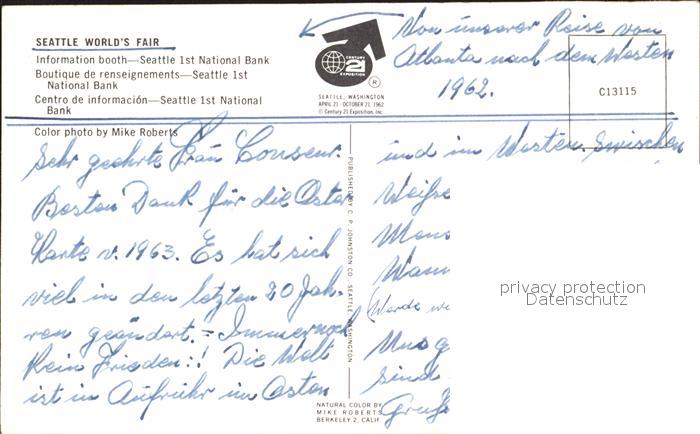 SEATTLE WORLD'S FAIR
Information booth—Seattle 1st National Bank
Boutique de renseignements—Seattle 1st
National Bank
Centro de información—Seattle 1st National
Bank
Color photo by Mike Roberts
CENTURY
21
EXPOSITION
®
SEATTLE, WASHINGTON
APRIL 21 - OCTOBER 21, 1962
© Century 21 Exposition, Inc.
Von unserer Reise von
Atlanta nach dem Westen
1962.
C13115
Sehr geehrte Frau
Besten Dank für die Oster
Karte v. 1963. Es hat sich
viel in den letzten 20 Jah-
ren geändert. = Immernoch
Kein Frieden:! Die Welt
ist in Aufruhr im Osten
PUBLISHED BY C. P. JOHNSTON CO. SEATTLE, WASHINGTON
NATURAL COLOR BY
MIKE ROBERTS
BERKELEY 2, CALIF.
und im Westen. Swischen
Weiße
Mens
Wann
(Werde wi
Uns g
sind
Gruß
privacy protection
Datenschutz